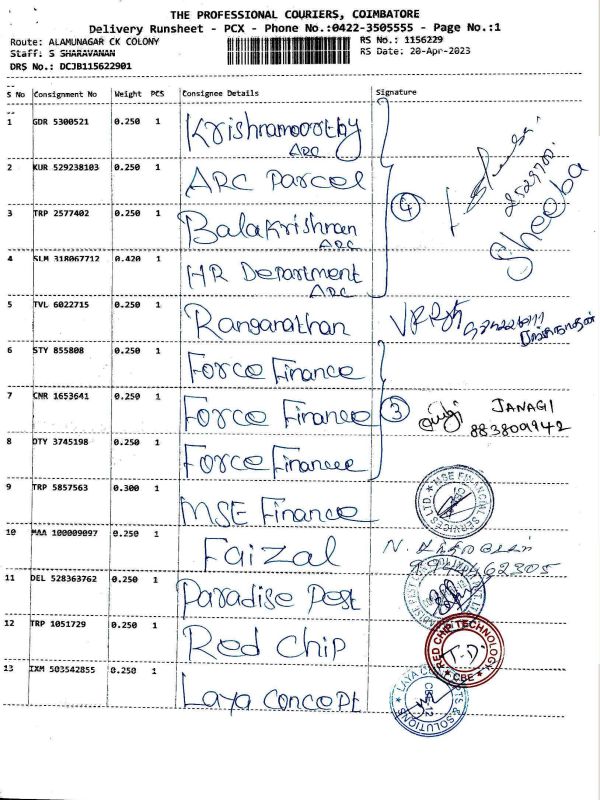 THE PROFESSIONAL COURIERS, COIMBATORE
Delivery Runsheet - PCX - Phone No.:0422-3505555 - Page No.:1
Route: ALAMUNAGAR CK COLONY
RS No.: 1156229
Staff: S SHARAVANAN
RS Date: 20-Apr-2023
DRS No.: DCJB115622901
S No Consignment No Weight PCS Consignee Details Signature
1 GDR 5300521 0.250 1 Krishnamoorthy
ARC
2 KUR 529238103 0.250 1 ARC Parcel
3 TRP 2577402 0.250 1 Balakrishnan
ARC
4
Sheeba
4 SLM 318067712 0.420 1 HR Department
ARC
5 TVL 6022715 0.250 1 Ranganathan
6 STY 855808 0.250 1 Force Finance
7 CNR 1653641 0.250 1 Force Finance
3
JANAGI
883809942
8 DTY 3745198 0.250 1 Force Finance
9 TRP 5857563 0.300 1 MSE Finance
MSE FINANCIAL SERVICES LTD.
10 MAA 100009097 0.250 1 Faizal
11 DEL 528363762 0.250 1 Paradise Pest
12 TRP 1051729 0.250 1 Red Chip
RED CHIP TECHNOLOGY
T.D.
CBE
13 IXM 503542855 0.250 1 Laya Concept
LAYA CONCEPTS & SOLUTIONS
CBE-12